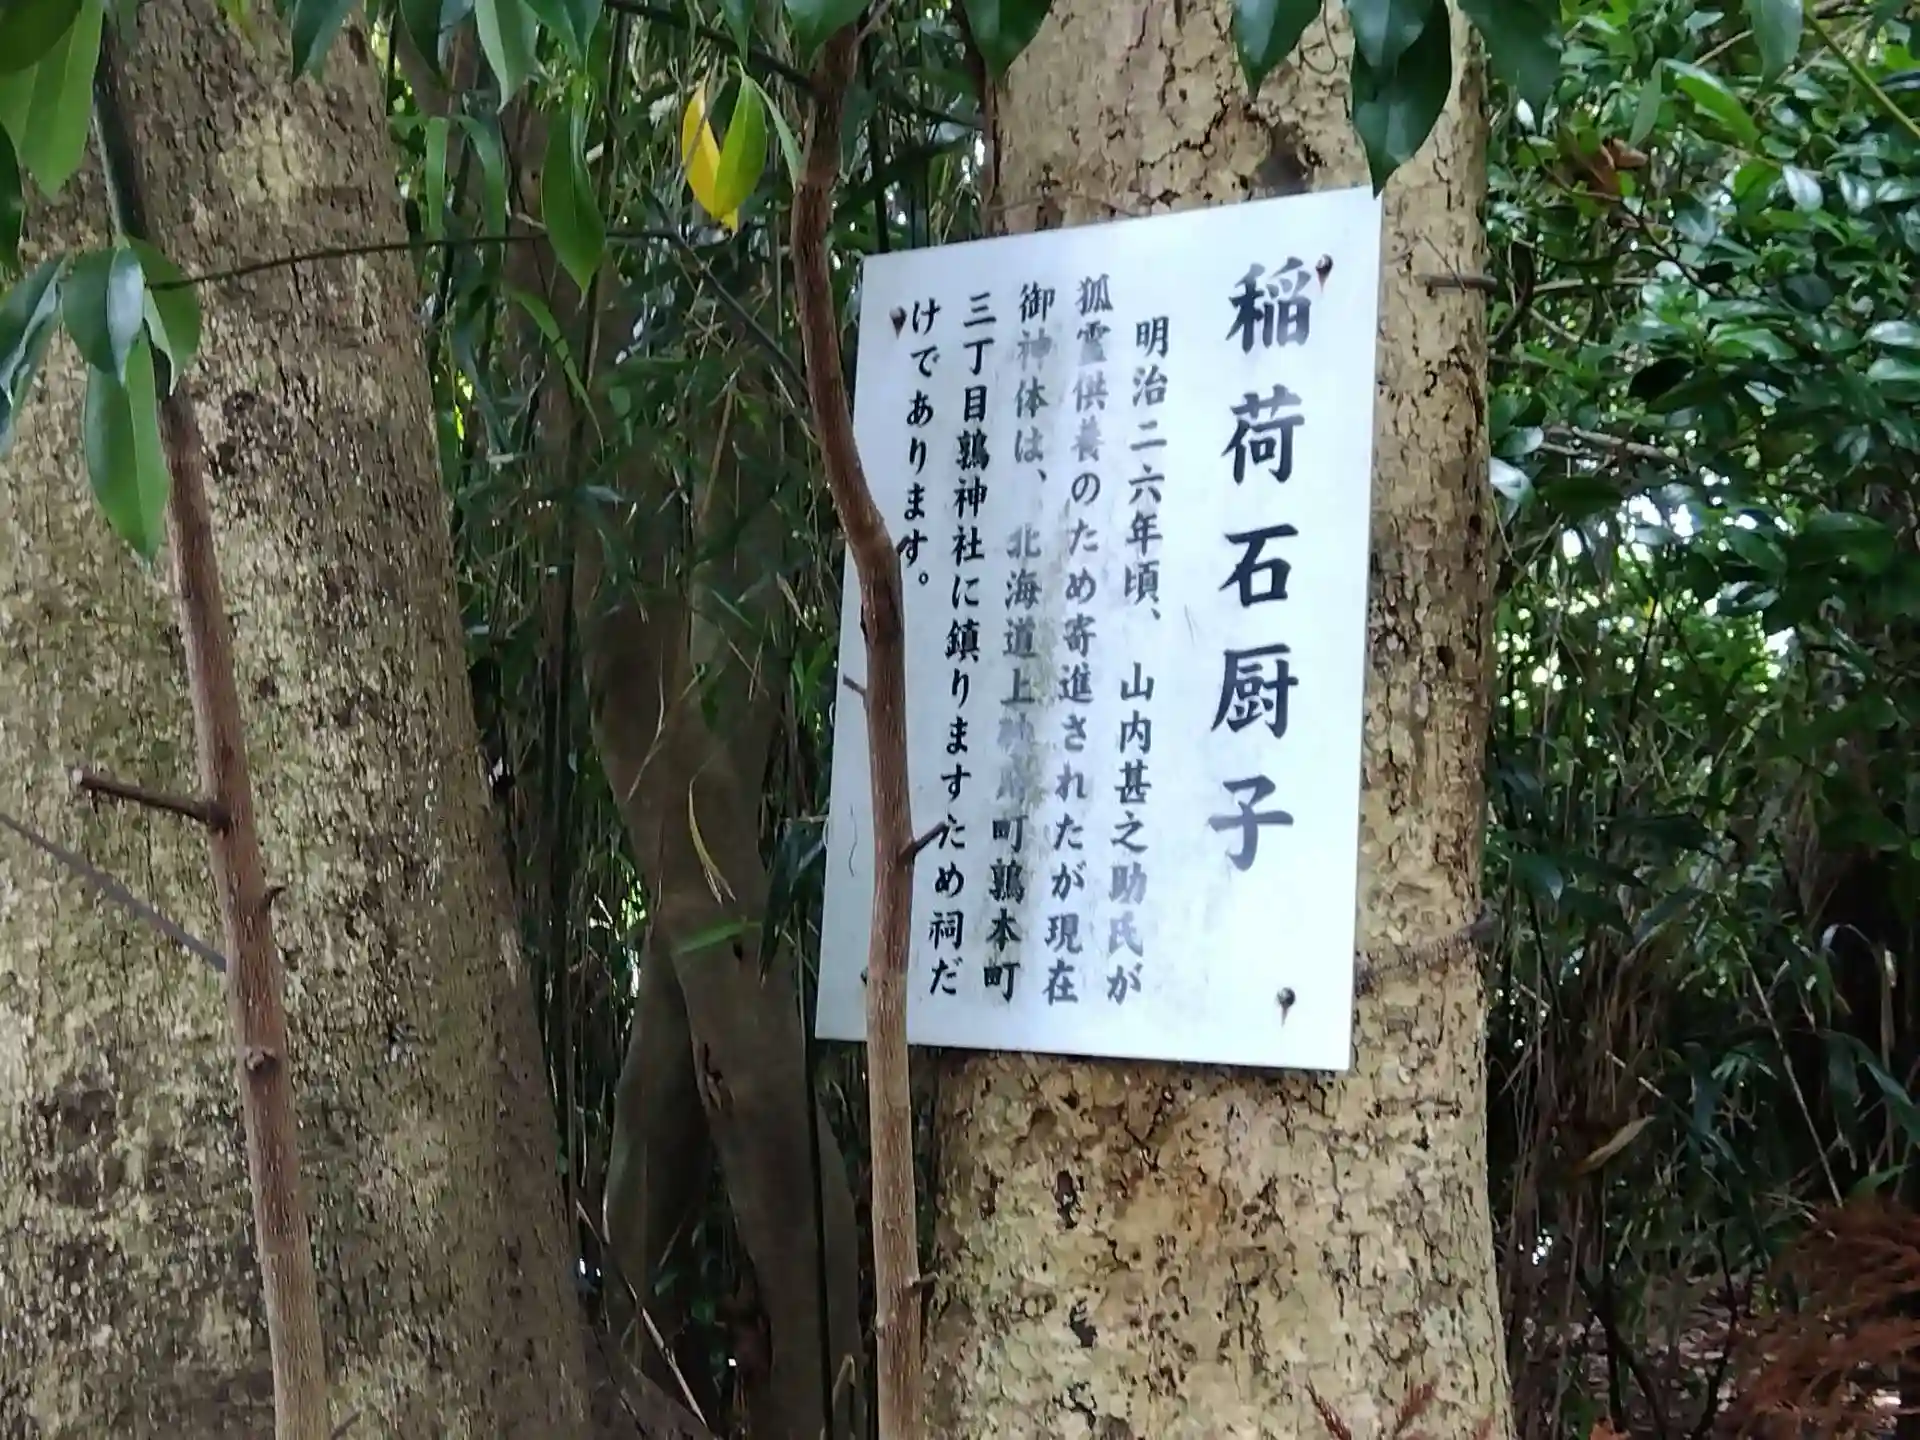 稲荷石厨子
明治二六年頃、山内甚之助氏が
狐霊供養のため寄進されたが現在
御神体は、北海道上磯郡町鶉本町
三丁目鶉神社に鎮りますため祠だ
けであります。